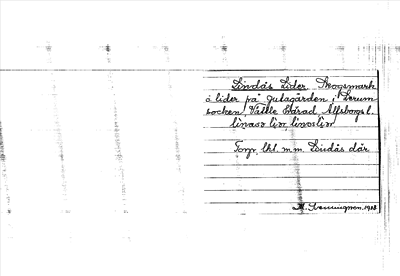 Lindås Lider. Skogsmark
å lider på Gutagården i Lerum
socken Vättle Härad Älfsborgs l.
linass lier linosliər
Torp, lht. m.m. Lindås där
M. Svenningson. 1928